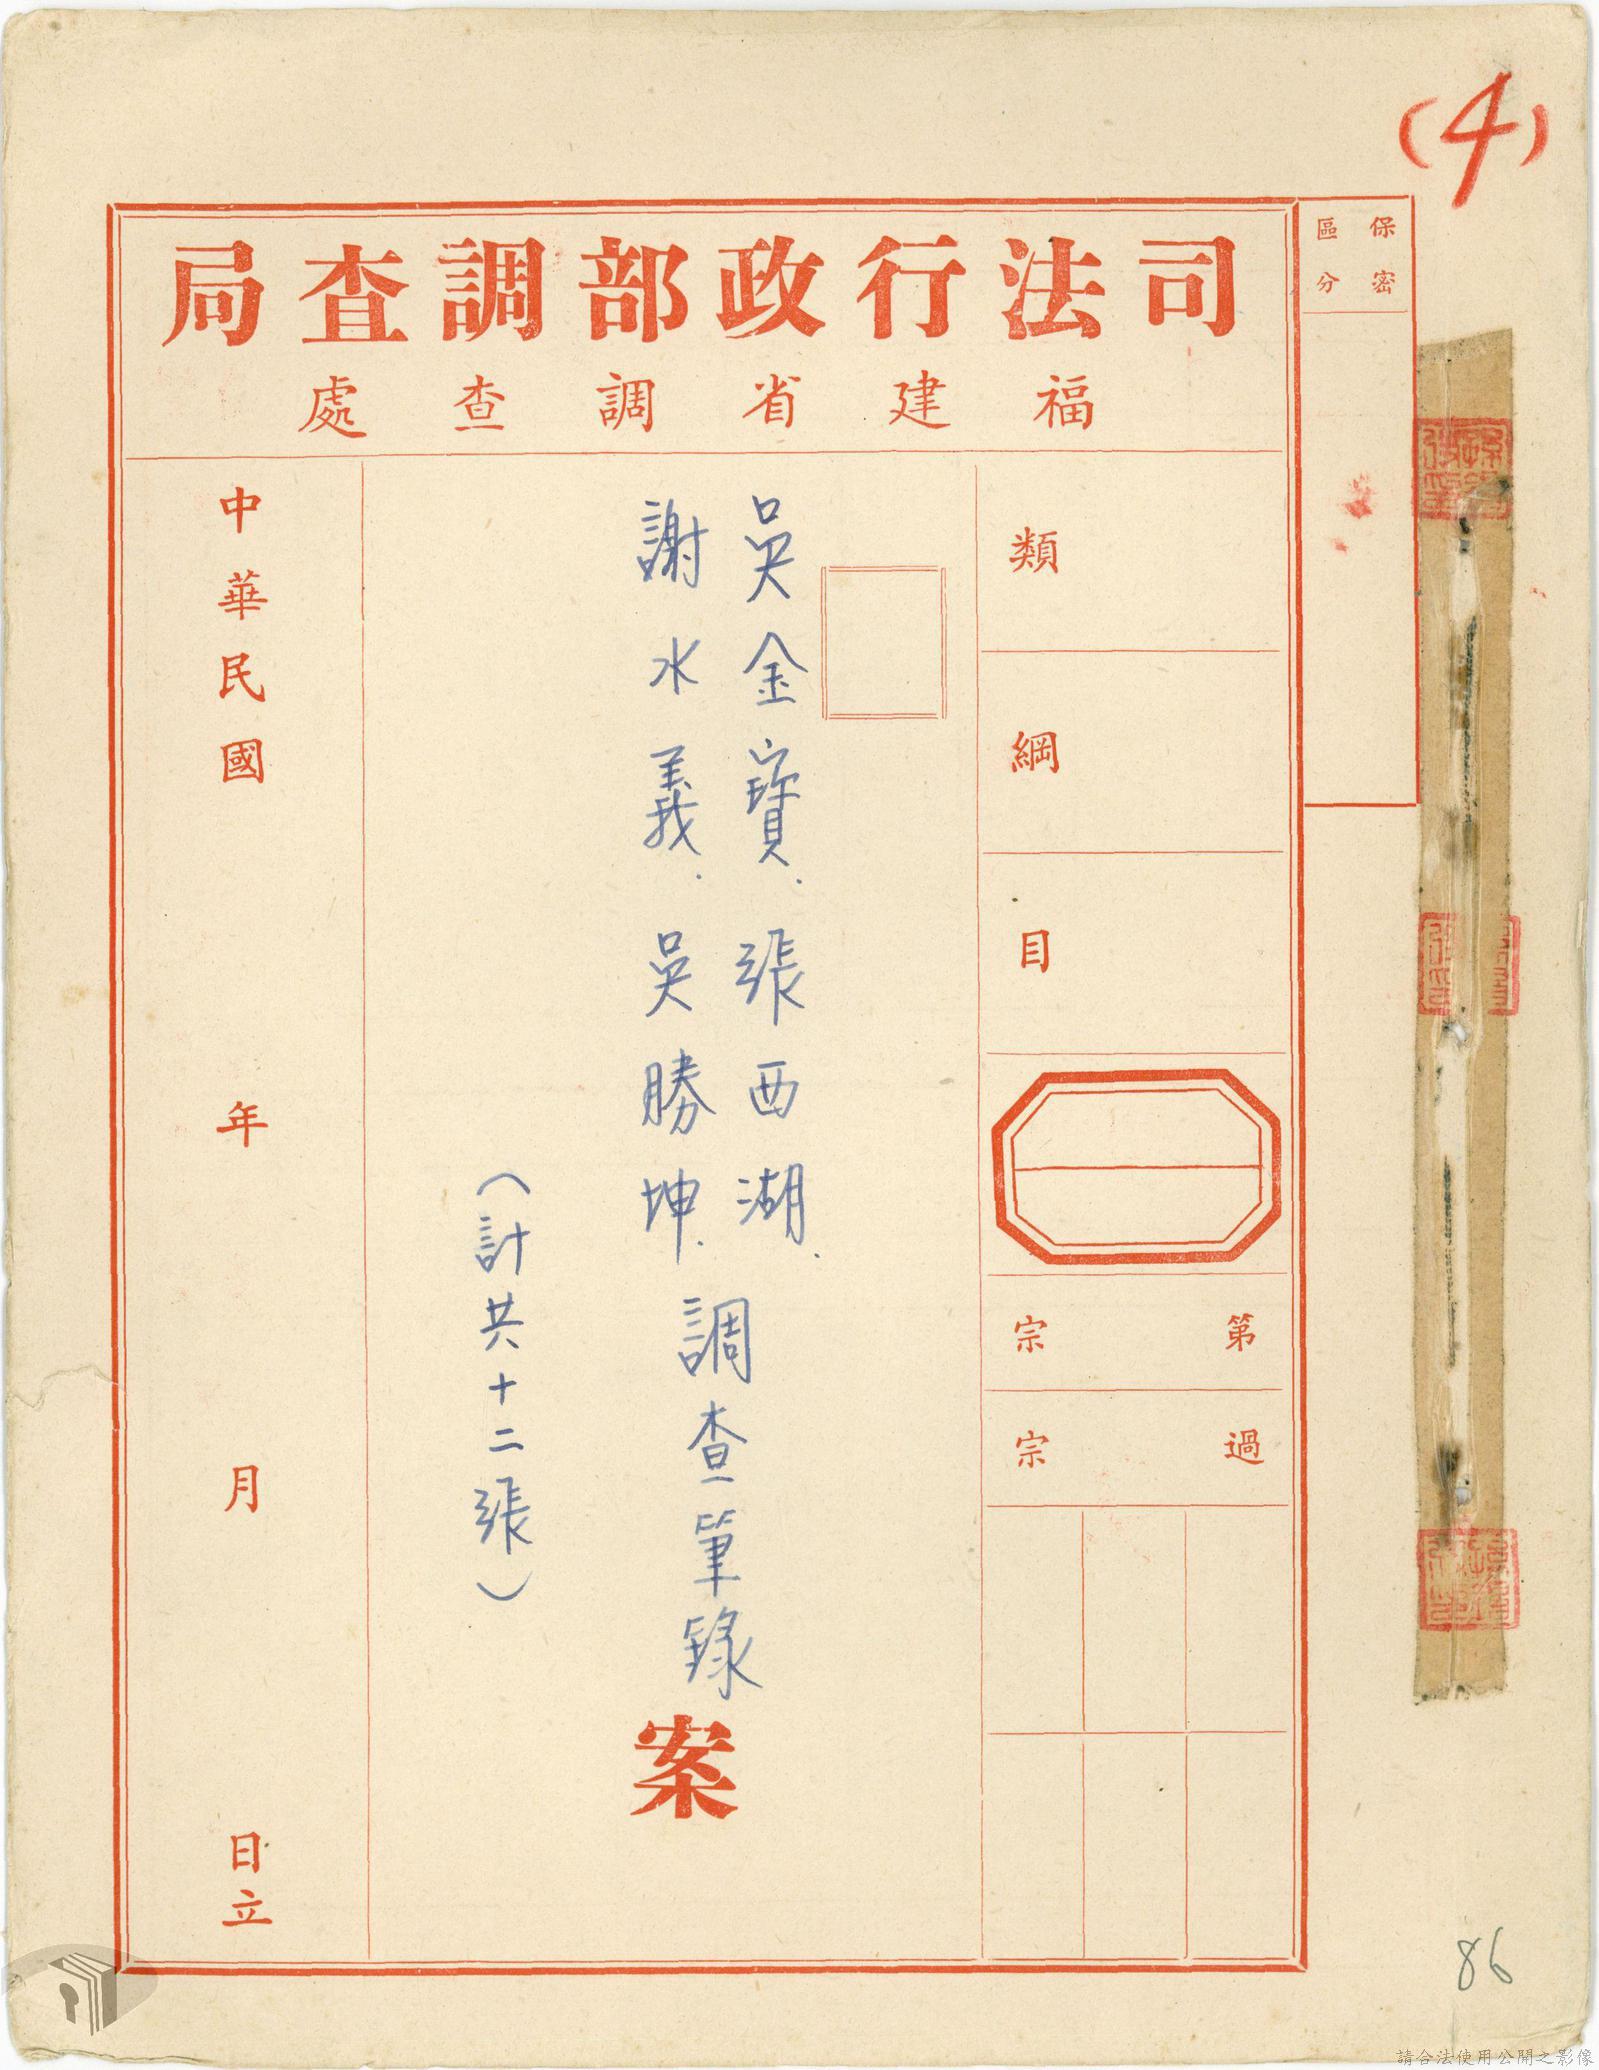 (4)
保密
區分
司法行政部調查局
福建省調查處
類
綱
目
第 宗
過 宗
吳金寶.張西湖.
謝水義.吳勝坤.
調查筆錄
案
（計共十二張）
中華民國 年 月 日立
86
請合法使用公開之影像